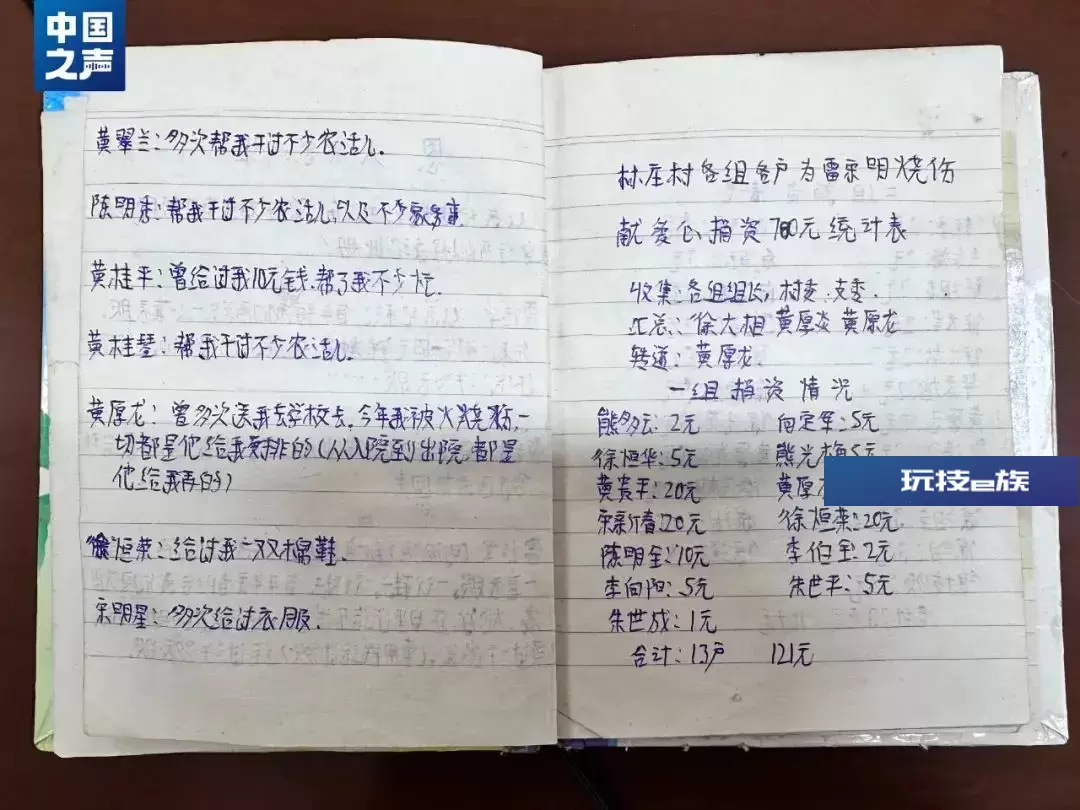 中国之声
黄翠兰：多次帮我干过不少农活儿.
陈明秀：帮我干过不少农活儿,以及不少家务事.
黄桂平：曾给过我10元钱.帮了我不少忙.
黄桂琴：帮我干过不少农活儿.
黄厚龙：曾多次送我去学校去,今年我被火烧伤,一
切都是他给我安排的(从入院到出院,都是
他给我弄的)
徐恒荣：给过我一双棉鞋.
宋明星：多次给过衣服.
林庄村各组各户为雷宗明烧伤
献爱心捐资700元统计表
收集：各组组长,村委.支委.
汇总：徐大相 黄厚炎 黄厚龙
转道：黄厚龙.
一组捐资情况
熊多云：2元 向定军：5元
徐恒华：5元 熊光梅5元
黄贵平：20元 黄厚
宋新春：20元 徐恒荣：20元
陈明全：10元 李伯全：2元
李向阳：5元 朱世平：5元
朱世成：1元
合计：13户 121元
玩技e族